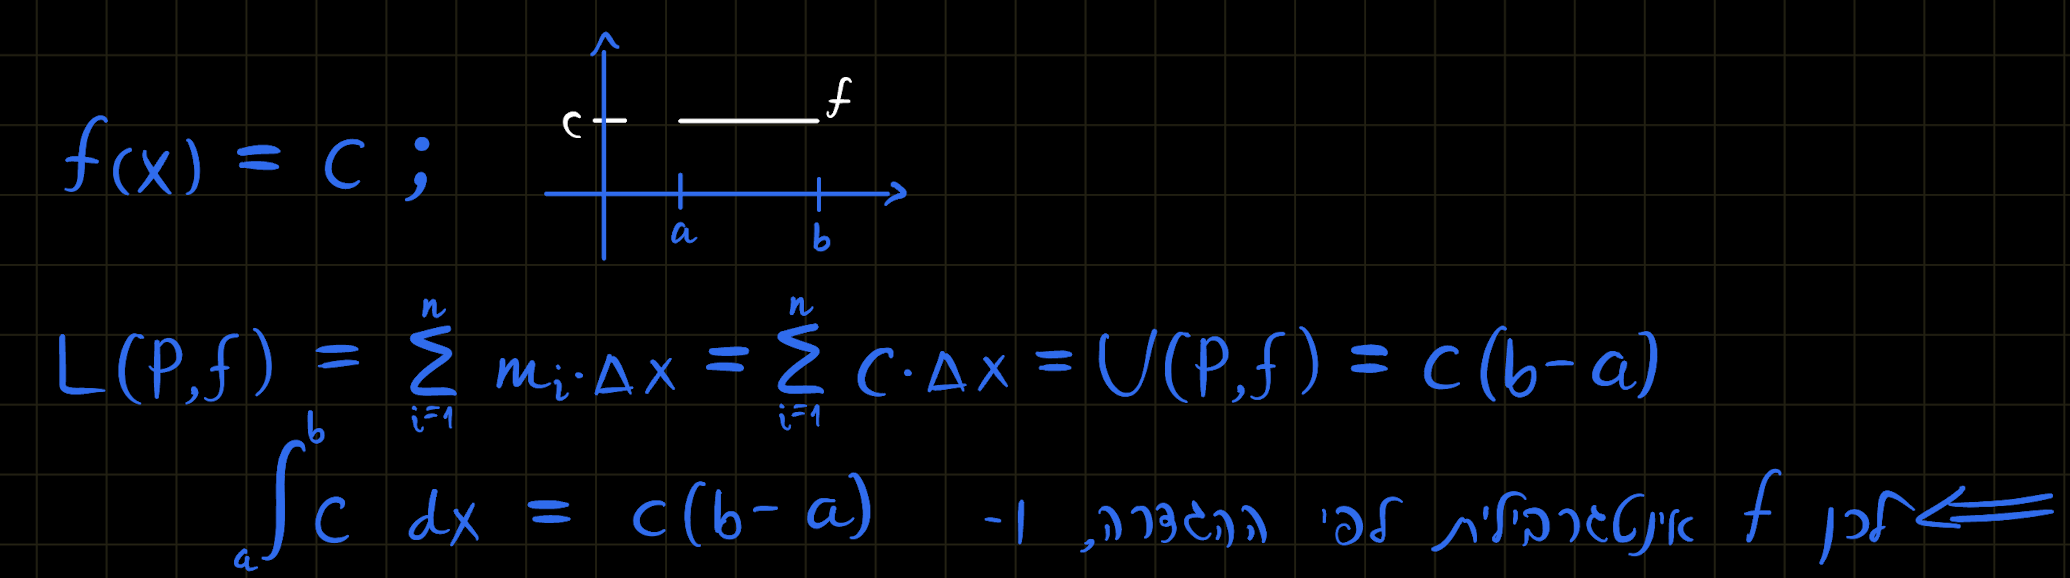 f
c
f(x) = c ;
a b
L(P,f) = \sum_{i=1}^{n} m_i \cdot \Delta x = \sum_{i=1}^{n} c \cdot \Delta x = U(P,f) = c(b-a)
⇐ לכן f אינטגרבילית לפי ההגדרה, ו- \int_{a}^{b} c dx = c(b-a)